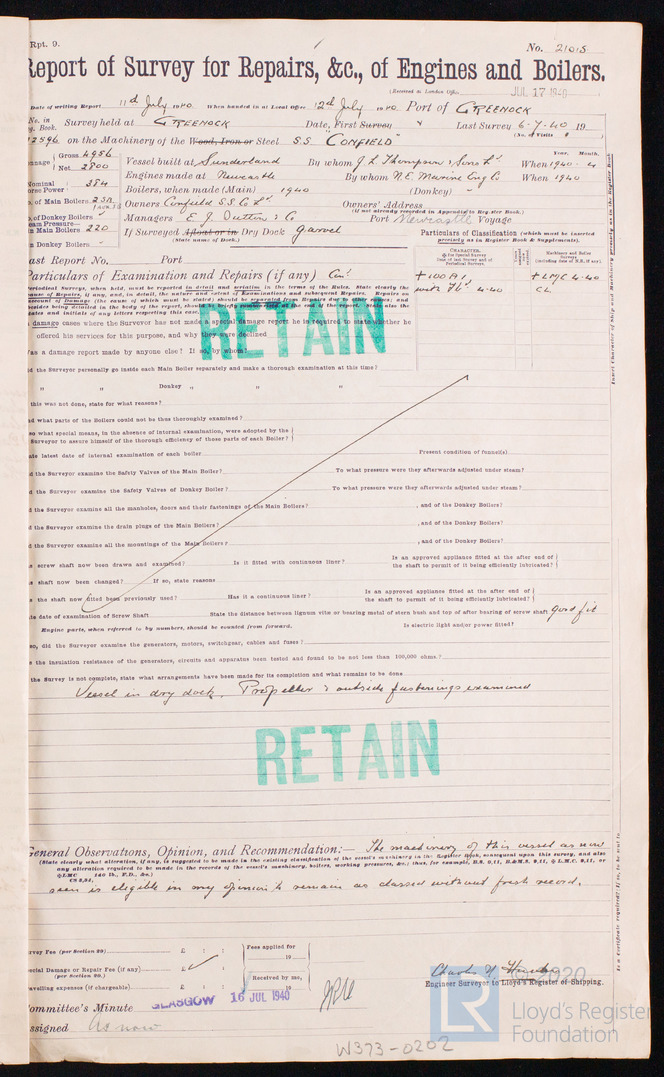 Rpt. 9.
No. 21015
Report of Survey for Repairs, &c., of Engines and Boilers.
(Received at London Office JUL 17 1940
Date of writing Report 11th July 1940 When handed in at Local Office 12th July 1940 Port of GREENOCK
No. in Survey held at GREENOCK Date, First Survey Last Survey 6-7-40 19
Reg. Book. (No. of Visits
2596 on the Machinery of the Wood, Iron or Steel S.S. "CONFIELD"
Gross 4956 Year. Month.
Tonnage Net 2800 Vessel built at Sunderland By whom J. L. Thompson & Sons Ld. When 1940 - 4
Nominal Horse Power 384 Engines made at Newcastle By whom N.E. Marine Eng Co When 1940
No. of Main Boilers 2 SB Boilers, when made (Main) 1940 (Donkey) -
Owners Confield S.S. Co Ld. Owners' Address
(If not already recorded in Appendix to Register Book.)
No. of Donkey Boilers
Steam Pressure— in Main Boilers 220 Managers E. J. Sutton & Co Port Newcastle Voyage
in Donkey Boilers - If Surveyed Afloat or in Dry Dock Garvel
(State name of Dock.)
Particulars of Classification (which must be inserted precisely as in Register Book & Supplements).
Last Report No. Port
CHARACTER.
Particulars of Examination and Repairs (if any)
+ 100 A1 + LMC 4.40
with fb'd 4.40 CL
RETAIN
In damage cases where the Surveyor has not made a special damage report he is required to state whether he
offered his services for this purpose, and why they were declined
Was a damage report made by anyone else? If so, by whom?
Did the Surveyor personally go inside each Main Boiler separately and make a thorough examination at this time?
" " Donkey " " "
If this was not done, state for what reasons?
And what parts of the Boilers could not be thus thoroughly examined?
Also what special means, in the absence of internal examination, were adopted by the
Surveyor to assure himself of the thorough efficiency of those parts of each Boiler?
State latest date of internal examination of each boiler Present condition of funnel(s)
Did the Surveyor examine the Safety Valves of the Main Boiler? To what pressure were they afterwards adjusted under steam?
Did the Surveyor examine the Safety Valves of Donkey Boiler? To what pressure were they afterwards adjusted under steam?
Did the Surveyor examine all the manholes, doors and their fastenings of the Main Boilers? , and of the Donkey Boilers?
Did the Surveyor examine the drain plugs of the Main Boilers? , and of the Donkey Boilers?
Did the Surveyor examine all the mountings of the Main Boilers? , and of the Donkey Boilers?
Has screw shaft now been drawn and examined? Is it fitted with continuous liner? Is an approved appliance fitted at the after end of the shaft to permit of it being efficiently lubricated?
Has shaft now been changed? If so, state reasons
Has the shaft now fitted been previously used? Has it a continuous liner? Is an approved appliance fitted at the after end of the shaft to permit of it being efficiently lubricated?
State date of examination of Screw Shaft State the distance between lignum vitæ or bearing metal of stern bush and top of after bearing of screw shaft good fit
Engine parts, when referred to by numbers, should be counted from forward. Is electric light and/or power fitted?
If so, did the Surveyor examine the generators, motors, switchgear, cables and fuses?
Has the insulation resistance of the generators, circuits and apparatus been tested and found to be not less than 100,000 ohms?
If the Survey is not complete, state what arrangements have been made for its completion and what remains to be done
Vessel in dry dock. Propeller & outside fastenings examined
RETAIN
General Observations, Opinion, and Recommendation:— The machinery of this vessel as now
(State clearly what alteration, if any, is suggested to be made in the existing classification of the vessel's machinery in the Register Book, consequent upon this survey, and also
any alteration required to be made in the records of the vessel's machinery, boilers, working pressures, &c.; thus, for example, B.S. 9,11, B.&M.S. 9,11, & L.M.C. 9,11, or
&LMC 140 lb., F.D., &c.)
CS 3,34,
seen is eligible in my opinion to remain as classed without fresh record.
Survey Fee (per Section 29) £ : :
Special Damage or Repair Fee (if any) £ : :
(per Section 29.)
Travelling expenses (if chargeable) £ : :
Fees applied for
19
Received by me,
19
© 2020
Engineer Surveyor to Lloyd's Register of Shipping.
Committee's Minute GLASGOW 16 JUL 1940
Assigned As now
LR
Lloyd's Register
Foundation
W373-0202